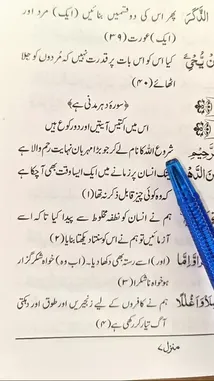 پھر اس کی دو قسمیں بنائیں (ایک) مرد اور
(ایک) عورت (۳۹)
کیا اس کو اس بات پر قدرت نہیں کہ مُردوں کو جلا
اٹھائے (۴۰)
﴿سورۂ دہر مدنی ہے﴾
اس میں اکتیس آیتیں اور دو رکوع ہیں
شروع اللہ کا نام لے کر جو بڑا مہربان نہایت رحم والا ہے
بیشک انسان پر زمانے میں ایک ایسا وقت بھی آ چکا ہے
کہ وہ کوئی چیز قابل ذکر نہ تھا (۱)
ہم نے انسان کو نطفۂ مخلوط سے پیدا کیا تاکہ اسے
آزمائیں تو ہم نے اس کو سنتا دیکھتا بنایا (۲)
(اور) اسے رستہ بھی دکھا دیا۔ (اب وہ) خواہ شکر گزار
ہو خواہ ناشکرا (۳)
ہم نے کافروں کے لیے زنجیریں اور طوق اور دہکتی
آگ تیار کر رکھی ہے (۴)
منزل ۷